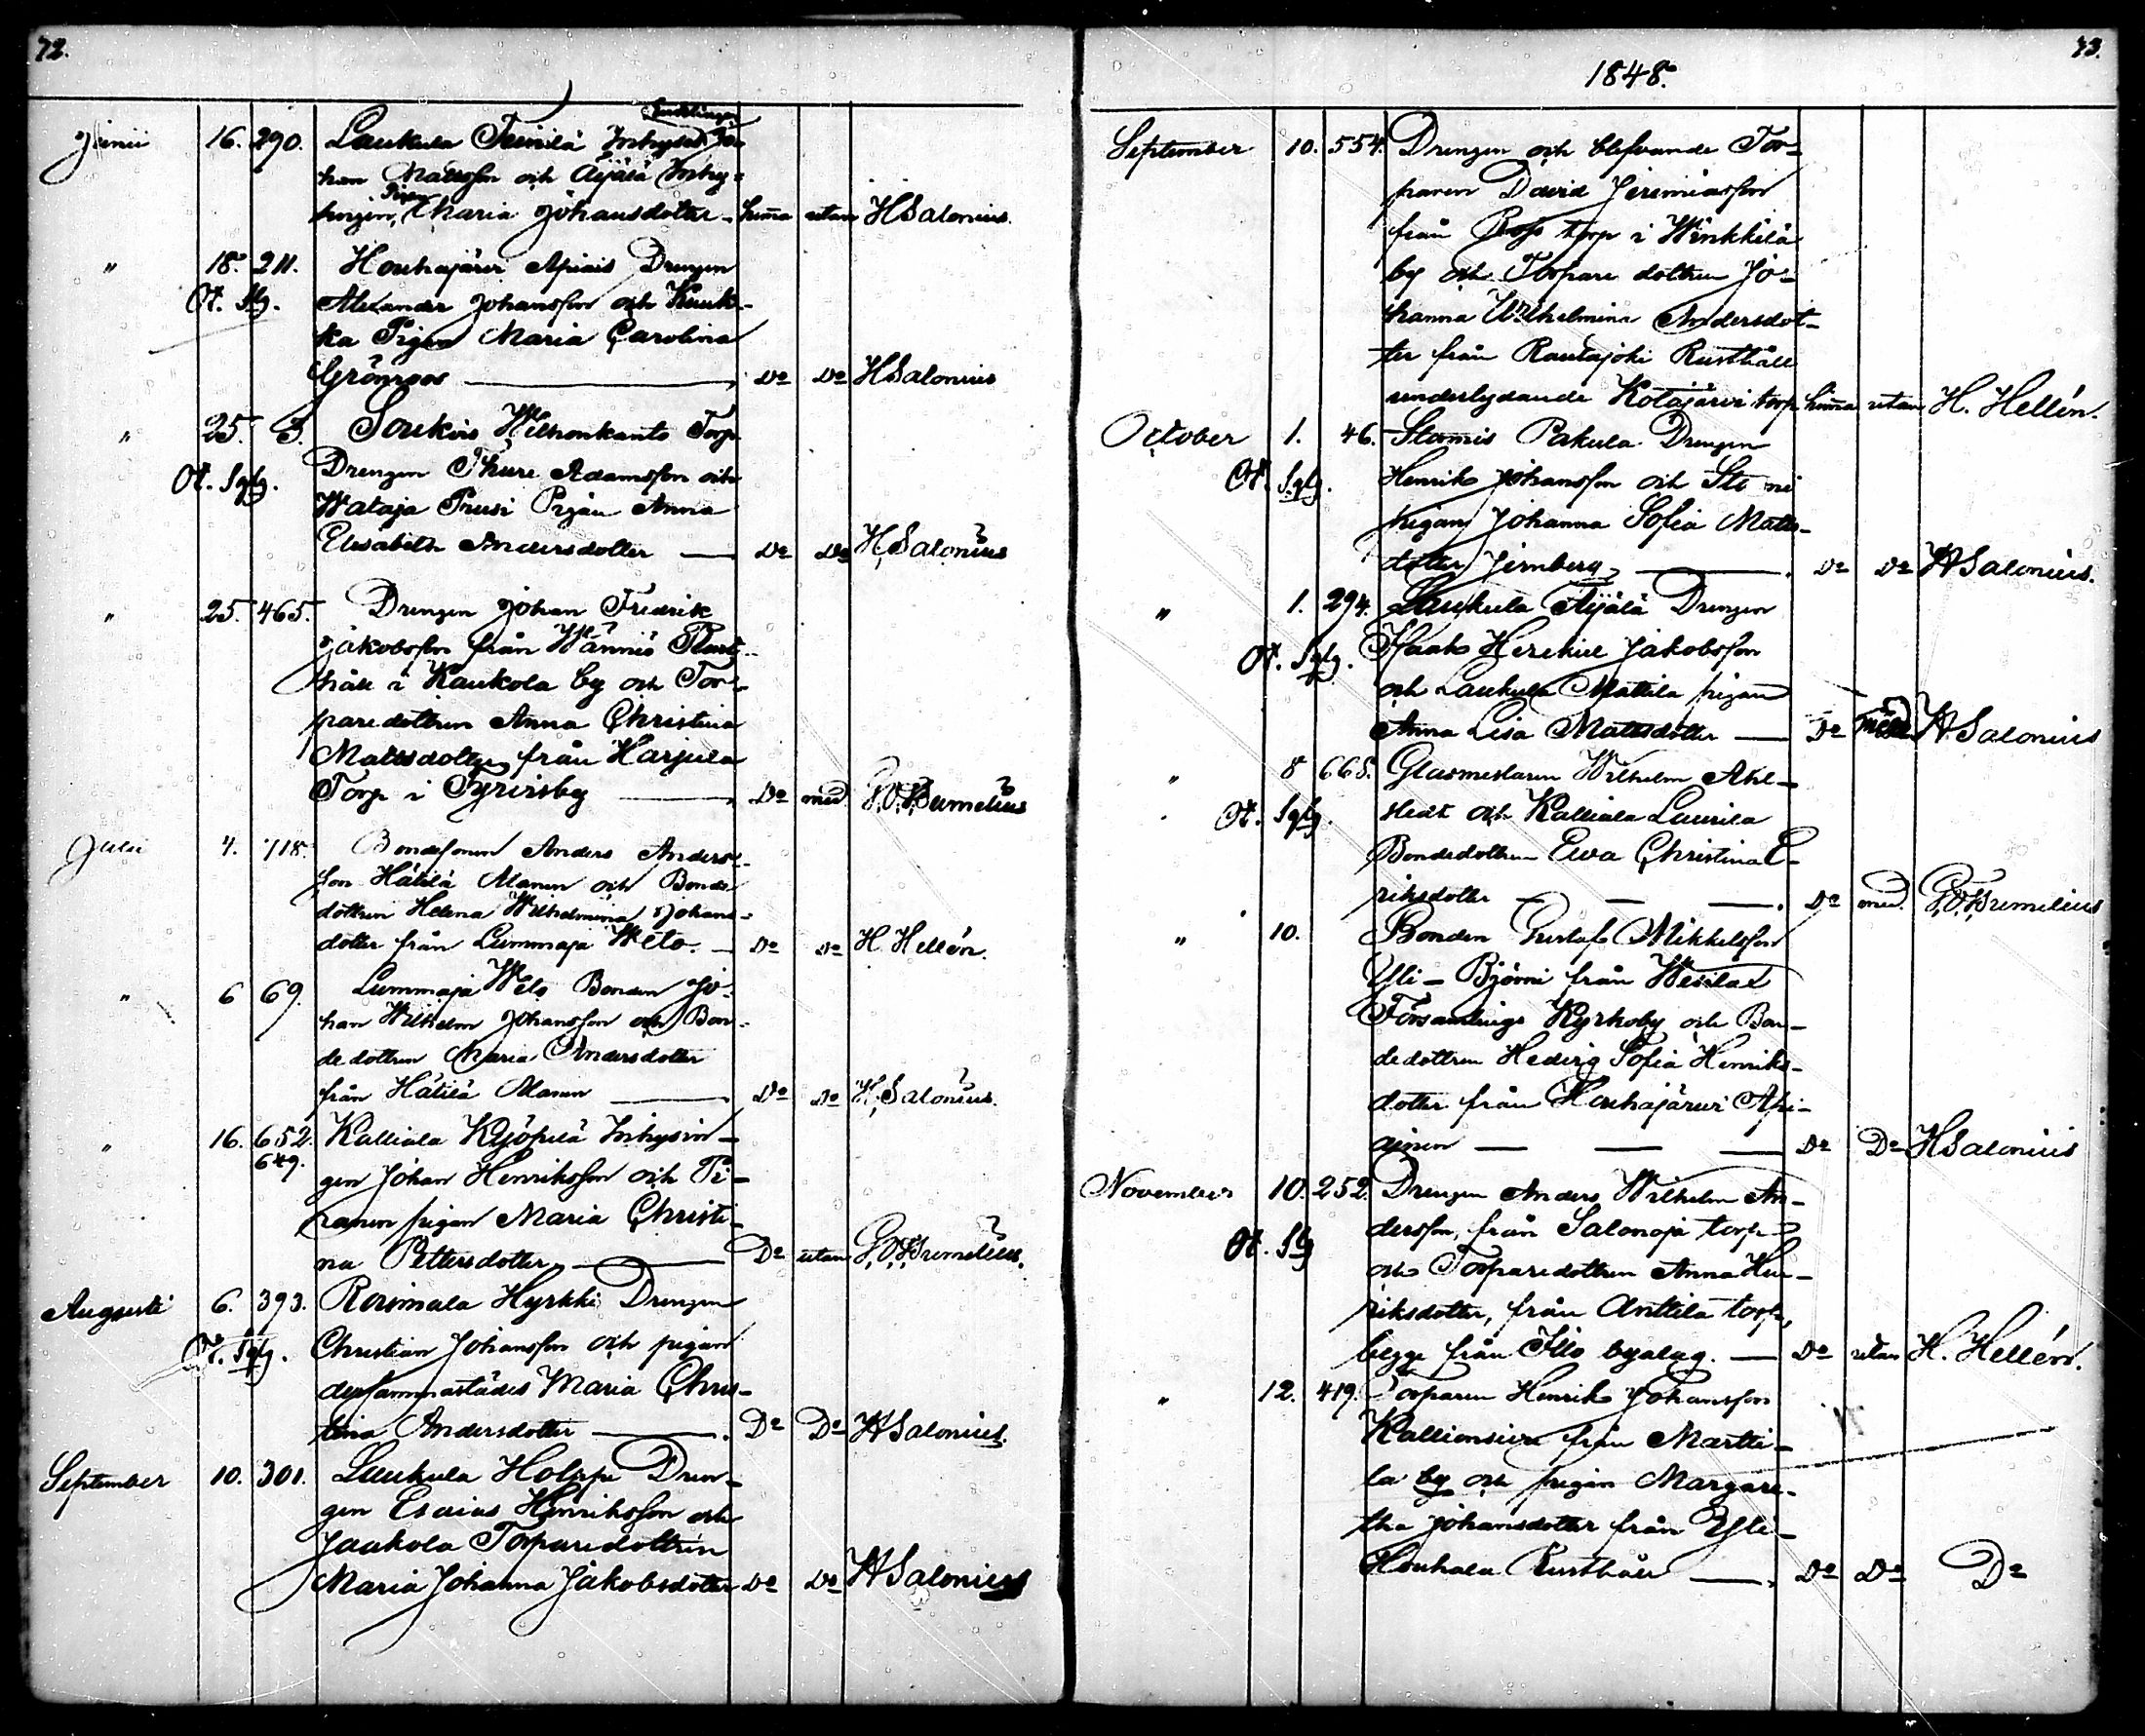 72.
Junii 16. 290. Laukula Tuirilä Inhyses Jo-
han Mattsson och Äijälä Inhy-
singen, Pigan Maria Johansdotter - hema utan HSalonius.
" 18. 211. Houhajärvi Apiais Drengen
Ot. Slg. Alexander Johansson och Kuuk-
ka Pigan Maria Carolina
Grönroos — Do Do HSalonius
" 25. 3. Soukois Torp.
Ot. Sglg. Drengen Thure Adamsson och
Wataja Prusi Pigan Anna
Elisabeth Andersdotter — Do Do H, Salonius
" 25. 465. Drengen Johan Fredrik
Jakobsson från Wännis Rust-
håll i Kaukola by och Tor-
paredottren Anna Christina
Mattsdotter från Harjula
Torp i Tyrvisby — Do med. G,O,Bumelius
Julii 4. 718. Bondesonen Anders Anders-
son Hätilä Manen och Bonde-
dottren Helena Wilhelmina Johans-
dotter från Lummaja Welo. — Do Do H. Hellén.
" 6 69. Lummaja Welo Bonden Jo-
han Wilhelm Johansson och Bon-
dedottren Maria Andersdotter
från Hätilä Manen — Do Do H, Salonius.
" 16. 652. Kalliala Kjöpilä Inhysin-
649. gen Johan Henriksson och Pi-
ranen pigan Maria Christi-
na Pettersdotter — Do utan G,O,Bumelius.
Augusti 6. 393. Roismala Hyrkki Drengen
Ot. Sglg. Christian Johansson och pigan
dersammastädes Maria Chris-
tina Andersdotter — Do Do HSalonius.
September 10. 301. Laukula Holppi Dren-
gen Esaias Henriksson och
Jaukola Torparedottren
Maria Johanna Jakobsdotter Do Do HSalonius
73.
1848.
September 10. 554. Drengen och blefvande Tor-
paren David Jeremiasson
från torp i Winkkilä
by och Torpare dottren Jo-
hanna Wilhelmina Andersdot-
ter från Rautajoki Rusthåll
underlydande Kotajärvi torp hema utan H. Hellén.
October 1. 46. Stormis Pakula Drengen
Ot. Sglg. Henrik Johansson och Sto mi
pigan Johanna Sofia Matts-
dotter Jernberg, — Do Do HSalonius.
" 1. 294. Laukula Äijälä Drengen
Ot. Sglg. Isaak Herekiel Jakobsson
och Laukula Mattila pigan
Anna Lisa Mattsdotter — Do med HSalonius
" 8 665. Glasmestaren Wilhelm Ahl-
Ot. Sglg. stedt och Kalliala Laurila
Bondedottren Ewa Christina E-
riksdotter — — — Do med. G,O,Bumelius
" 10. Bonden Gustaf Mikkelsson
Yli-Björni från Wesilax
Församlings Kyrkoby och Bon-
dedottren Hedvig Sofia Henriks-
dotter från Houhajärvi Api-
ainen — — — Do Do HSalonius
November 10. 252. Drengen Anders Wilhelm An-
Ot. Slg dersson, från Salonoja torp
och Torparedottren Anna Hen-
riksdotter, från Anttila torp,
begge från Illo byalag. — Do utan H. Hellén.
" 12. 419. Torparen Henrik Johansson
Kallionsivu från Martti-
la by och pigan Margare-
tha Johansdotter från Yli-
Houhala Rusthåll — Do Do Do